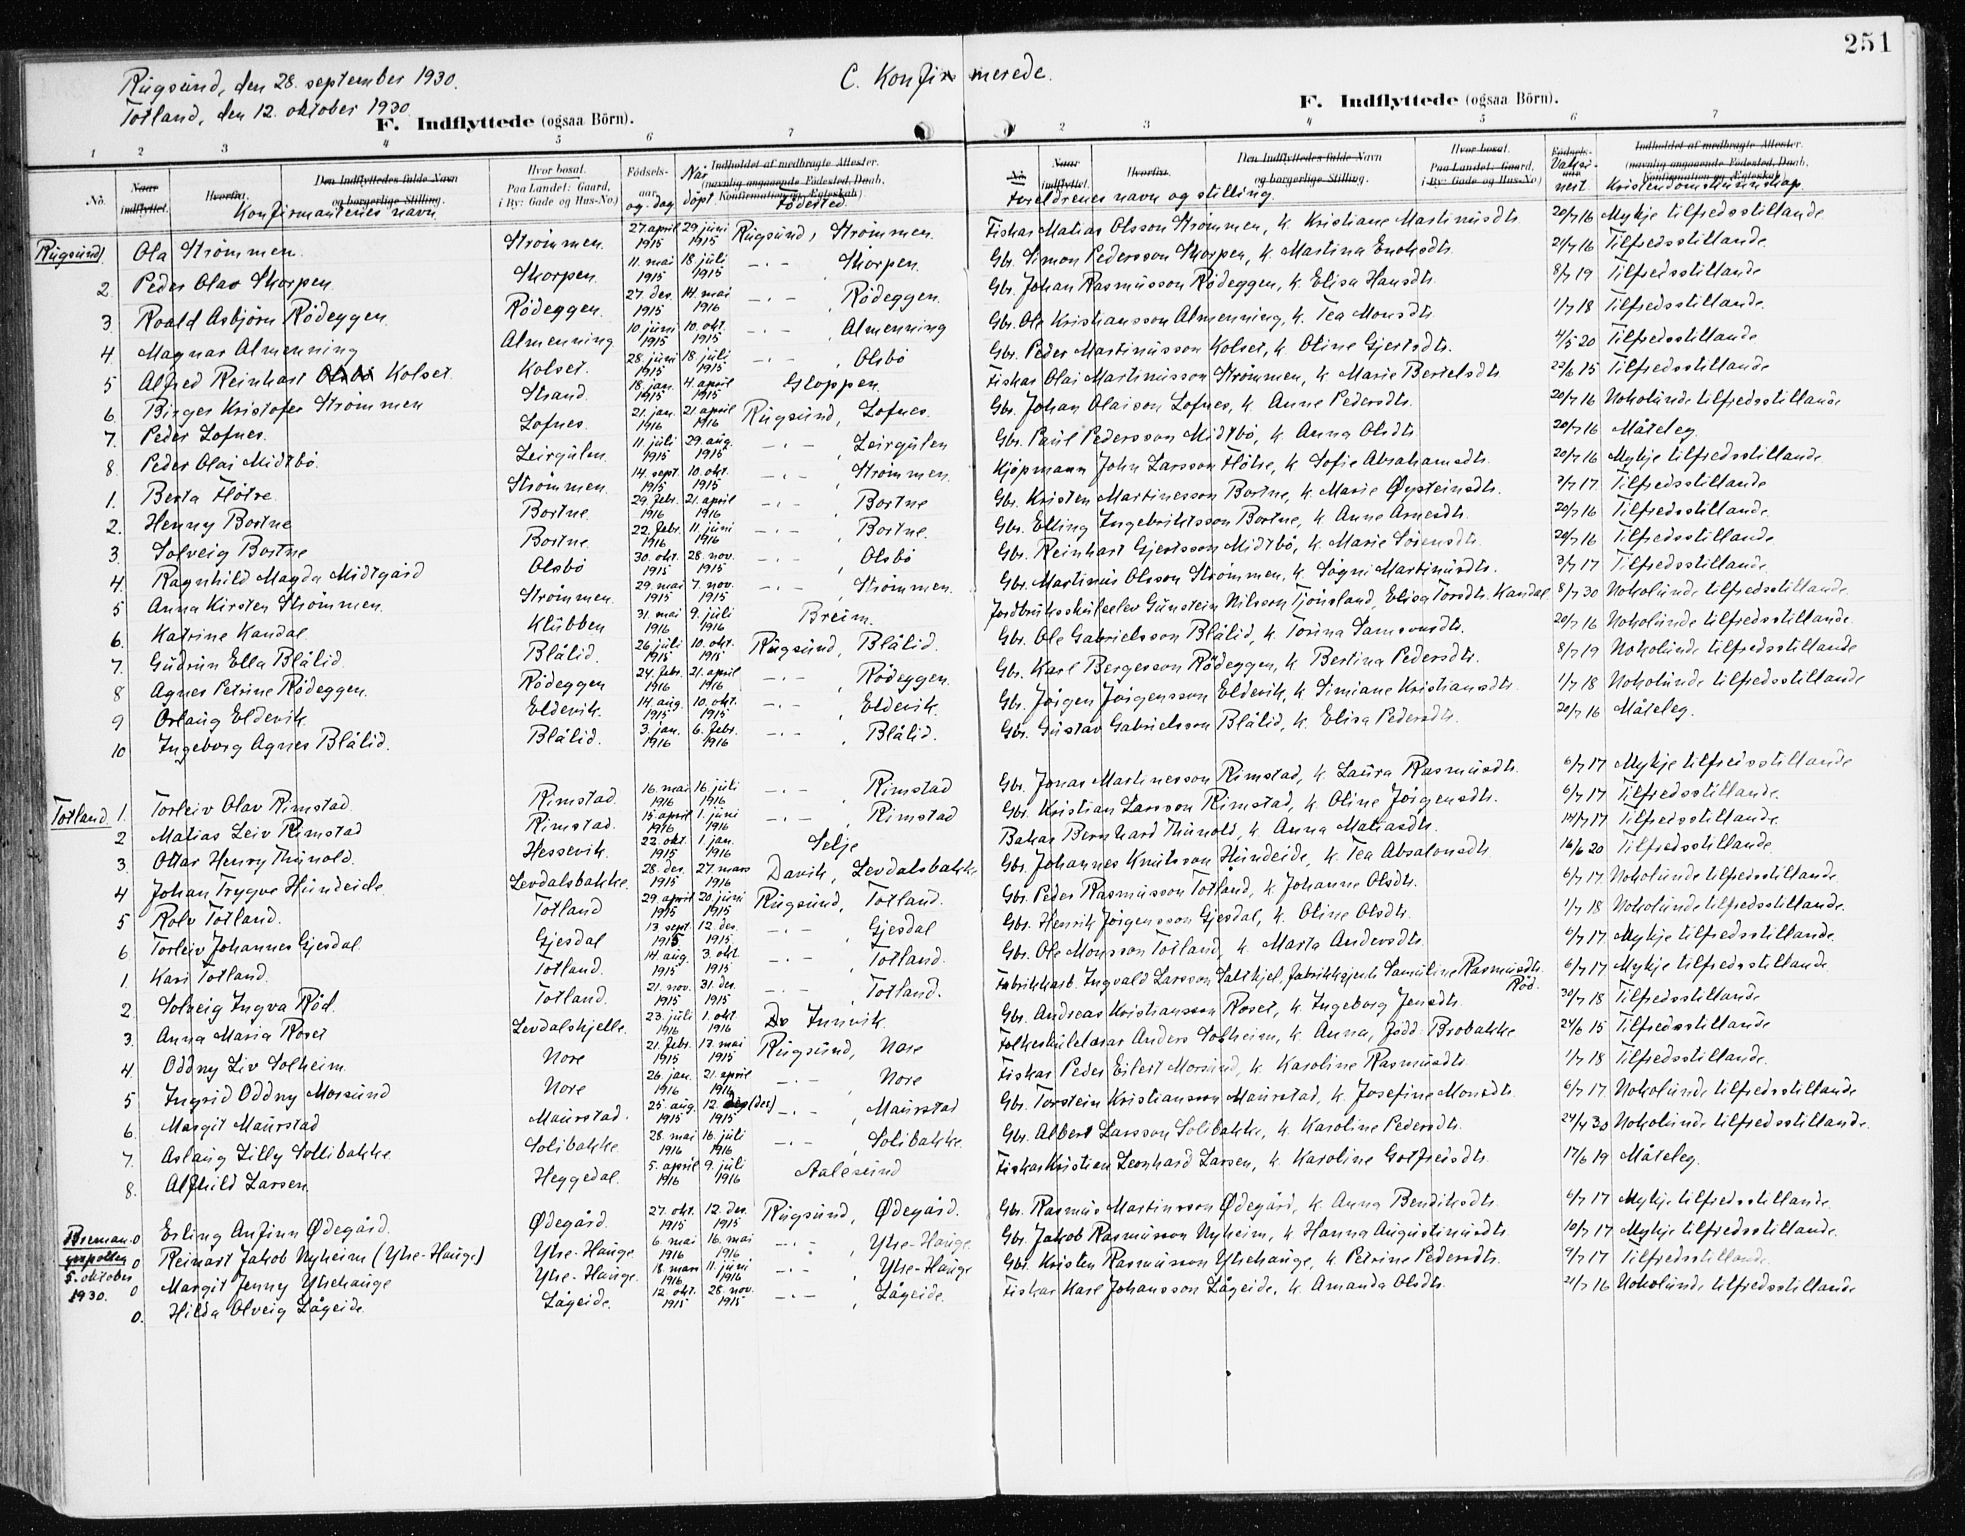 251
Rugsund, den 28. september 1930.
Totland, den 12. oktober 1930.
C. Konfirmerede.
F. Indflyttede (ogsaa Börn).
F. Indflyttede (ogsaa Börn).
1 2 3 4 5 6 7
1 2 3 4 5 6 7
No. Naar indflyttet. Hvorfra. Den Indflyttedes fulde Navn og borgerlige Stilling. Konfirmantenes navn Hvor bosat. Paa Landet: Gaard, i By: Gade og Hus-No.) Fødsels-aar og-dag Når döpt Indholdet af medbragte Attester. (navnlig angaaende Fødested, Daab, Konfirmation og Ægteskab) Födested.
No. Naar indflyttet. Hvorfra. Den Indflyttedes fulde Navn og borgerlige Stilling. Foreldrenes navn og stilling. Hvor bosat. Paa Landet: Gaard, i By: Gade og Hus-No.) Fødsels- Vaksinert Indholdet af medbragte Attester. (navnlig angaaende Fødested, Daab, Konfirmation og Ægteskab) Kristendomskunnskap.
Rugsund Ola Strömmen. Strömmen. 27. april 1915 29. juni 1915 Rugsund, Strömmen. Fiskar Matias Olsson Strömmen, k. Kristiane Martinusdtr. 20/7 16 Mykje tilfredsstillande
2 Peder Olav Skorpen. Skorpen. 11. mai 1915 18. juli 1915 -"- Skorpen. Gbr. Simon Pedersson Skorpen, k. Martina Enoksdtr. 21/7 16 Tilfredsstillande
3. Roald Asbjörn Rödeggen. Rödeggen. 27. des. 1915 14. mai 1916 -"- , Rödeggen. Gbr. Johan Rasmusson Rödeggen, k. Elisa Hansdtr. 8/7 19 Tilfredsstillande
4. Magnar Almenning Almenning 10. juni 1915 10. okt. 1915 -"- , Almenning Gbr. Ole Kristiansson Almenning, k. Tea Monsdtr. 1/7 18 Tilfredsstillande.
5 Alfred Reinhart Kolset. Kolset. 28. juni 1915 18. juli 1915 -"- , Olsbö Gbr. Peder Martinusson Kolset, k. Oline Gjertsdtr. 4/5 20 Tilfredsstillande
6. Birger Kristofer Strömmen Strand. 18. jan. 1915 4. april 1915 Gloppen. Fiskar Olai Martinusson Strömmen, k. Marie Bertelsdtr. 22/6 15 Tilfredsstillande
7. Peder Lofnes. Lofnes. 21. jan. 1916 21. april 1916 Rugsund, Lofnes. Gbr. Johan Olaison Lofnes, k. Anne Pedersdtr. 20/7 16 Nokolunde tilfredsstillande
8. Peder Olai Midtbö. Leirgulen. 11. juli 1915 29. aug. 1915 -"- , Leirgulen Gbr. Paul Pedersson Midtbö, k. Anna Olsdtr. 20/7 16 Måteleg.
1. Berta Flötre Strömmen. 14. sept. 1915 10. okt. 1915 -"- , Strömmen. Kjöpmann John Larsson Flötre, k. Sofie Abrahamsdtr. 20/7 16 Mykje tilfredsstillande
2. Henny Bortne Bortne. 29. febr. 1916 21. april 1916 -"- , Bortne Gbr. Kristen Martinesson Bortne, k. Marie Øysteinsdtr. 3/7 17. Tilfredsstillande
3. Solveig Bortne Bortne. 22. febr. 1916 11. juni 1916 -"- , Bortne. Gbr. Elling Ingebriktsson Bortne, k. Anne Arnesdtr. 20/7 16 Tilfredsstillande.
4. Ragnhild Magda Midtgård Olsbö 30. okt. 1915 28. nov. 1915 -"- , Olsbö Gbr. Reinhart Gjertsson Midtbö, k. Marie Sörensdtr. 20/7 16 Tilfredsstillande.
5 Anna Kirsten Strömmen. Strömmen. 29. mai 1915 7. nov. 1915 -"- , Strömmen. Gbr. Martinus Olsson Strömmen, k. Sögni Martinusdtr. 3/7 17 Tilfredsstillande.
6. Katrine Kandal Klubben 31. mai 1916 9. juli 1916 Breim. Jordbruksskuleelev Gunstein Nilsson Tjönsland, Elisa Torsdtr. Kandal 8/7 30 Nokolunde tilfredsstillande.
7. Gudrun Ella Blålid. Blålid. 26. juli 1915 10. okt. 1915 Rugsund, Blålid. Gbr. Ole Gabrielsson Blålid, k. Torina Samsonsdtr. 20/7 16 Nokolunde tilfredsstillande.
8 Agnes Petrine Rödeggen. Rödeggen 24. febr. 1916 21. april 1916 -"- , Rödeggen. Gbr. Karl Bergesson Rödeggen, k. Bertina Pedersdtr. 8/7 19 Nokolunde tilfredsstillande
9 Orlaug Eldevik. Eldevik. 14. aug. 1915 10. okt. 1915 -"- , Eldevik. Gbr. Jörgen Jörgensson Eldevik, k. Simiane Kristiansdtr. 1/7 18 Nokolunde tilfredsstillande
10 Ingeborg Agnes Blålid. Blålid. 3. jan. 1916 6. febr. 1916 -"- , Blålid. Gbr. Gustav Gabrielsson Blålid, k. Elisa Pedersdtr. 20/7 16 Måteleg.
Totland. 1. Torleiv Olav Rimstad Rimstad. 16. mai 1916 16. juli 1916 -"- , Rimstad Gbr. Jonas Martinesson Rimstad, k. Laura Rasmusdtr. 6/7 17 Mykje tilfredsstillande
2 Matias Leiv Rimstad Rimstad. 15. april 1916 1. juni 1916 -"- , Rimstad Gbr. Kristian Larsson Rimstad, k. Oline Jörgensdtr. 6/7 17 Tilfredsstillande.
3. Ottar Henry Thunold. Hessevik. 22. okt. 1915 1. jan. 1916 Selje Bakar Bernhard Thunold, k. Anna Matiasdtr. 14/7 17 Tilfredsstillande.
4 Johan Trygve Hundeide. Levdalsbakke. 28. des. 1915 27. mars 1916 Davik, Levdalsbakke Gbr. Johannes Knutsson Hundeide, k. Tea Absalonsdtr. 16/6 20 Tilfredsstillande.
5 Rolv Totland. Totland 29. april 1915 20. juni 1915 Rugsund, Totland. Gbr. Peder Rasmusson Totland, k. Johanne Olsdtr. 6/7 17 Nokolunde tilfredsstillande.
6 Torleiv Johannes Gjesdal Gjesdal 13. sept. 1915 12. des. 1915. -"- , Gjesdal Gbr. Henrik Jörgensson Gjesdal, k. Oline Olsdtr. 1/7 18 Nokolunde tilfredsstillande.
1. Kari Totland. Totland. 14. aug. 1915 3. okt. 1915 -"- , Totland. Gbr. Ole Monsson Totland, k. Marta Andersdtr. 6/7 17 Mykje tilfredsstillande.
2. Solveig Ingva Röd. Totland. 21. nov. 1915 31. des. 1915 -"- , Totland. Fabrikkarb. Ingvald Larsson Saltkjel, fabrikkgjente Samuline Rasmusdtr. Röd. 6/7 17 Mykje tilfredsstillande
3. Anna Maria Roset Levdalskjelle. 23. juli 1916 1. okt. 1916 Innvik. Gbr. Andreas Kristiansson Roset, k. Ingeborg Jensdtr. 30/7 18 Tilfredsstillande
4 Oddny Liv Solheim Nore 21. febr. 1915 17. mai 1915 Rugsund, Nore Folkeskulelærar Anders Solheim, k. Anna, född Brobakke 24/6 15 Tilfredsstillande
5 Ingrid Oddny Morsund Nore 26. jan. 1916 21. april 1916 -"- , Nore Fiskar Peder Eilert Morsund, k. Karoline Rasmusdtr. 1/7 18 Tilfredsstillande.
6. Margit Maurstad Maurstad. 25. aug. 1915 12. (des) 1915 -"- , Maurstad Gbr. Torstein Kristiansson Maurstad, k. Josefine Monsdtr. 6/7 17. Nokolunde tilfredsstillande
7. Aslaug Lilly Sollibakke Solibakke. 28. mai 1916 16. juli 1916 -"- , Solibakke. Gbr. Albert Larsson Solibakke, k. Karoline Pedersdtr. 24/4 30 Nokolunde tilfredsstillande.
8. Alfhild Larsen. Heggedal. 5. april 1916 9. juli 1916 Aalesund Fiskar Kristien Leonhard Larsen, k. Karoline Gotfredsdtr. 17/6 19 Måteleg.
Bremangerpollen 5. oktober 1930.
0 Erling Anfinn Ødegård. Ødegård. 27. okt. 1915 12. des. 1915 Rugsund, Ødegård. Gbr. Rasmus Martinsson Ødegård, k. Anna Bendiksdtr. 6/7 17 Mykje tilfredsstillande.
0 Reinart Jakob Nyheim (Ytre-Hauge) Ytre-Hauge. 6. mai 1916 16. mai 1916 -"- , Ytre-Hauge Gbr. Jakob Rasmusson Nyheim, k. Hanna Augustinusdtr. 10/7 17 Mykje tilfredsstillande.
0 Margit Jenny Ytrehauge Ytre-Hauge. 18. mars 1916 11. juni 1916 -"- , Ytre-Hauge Gbr. Kristen Rasmusson Ytrehauge, k. Petrine Pedersdtr. 9/7 17 Tilfredsstillande
0. Hilda Olveig Lågeide. Lågeide. 12. okt. 1915 28. nov. 1915 -"- , Lågeide. Fiskar Karl Johansson Lågeide, k. Amanda Olsdtr. 21/7 16 Nokolunde tilfredsstillande